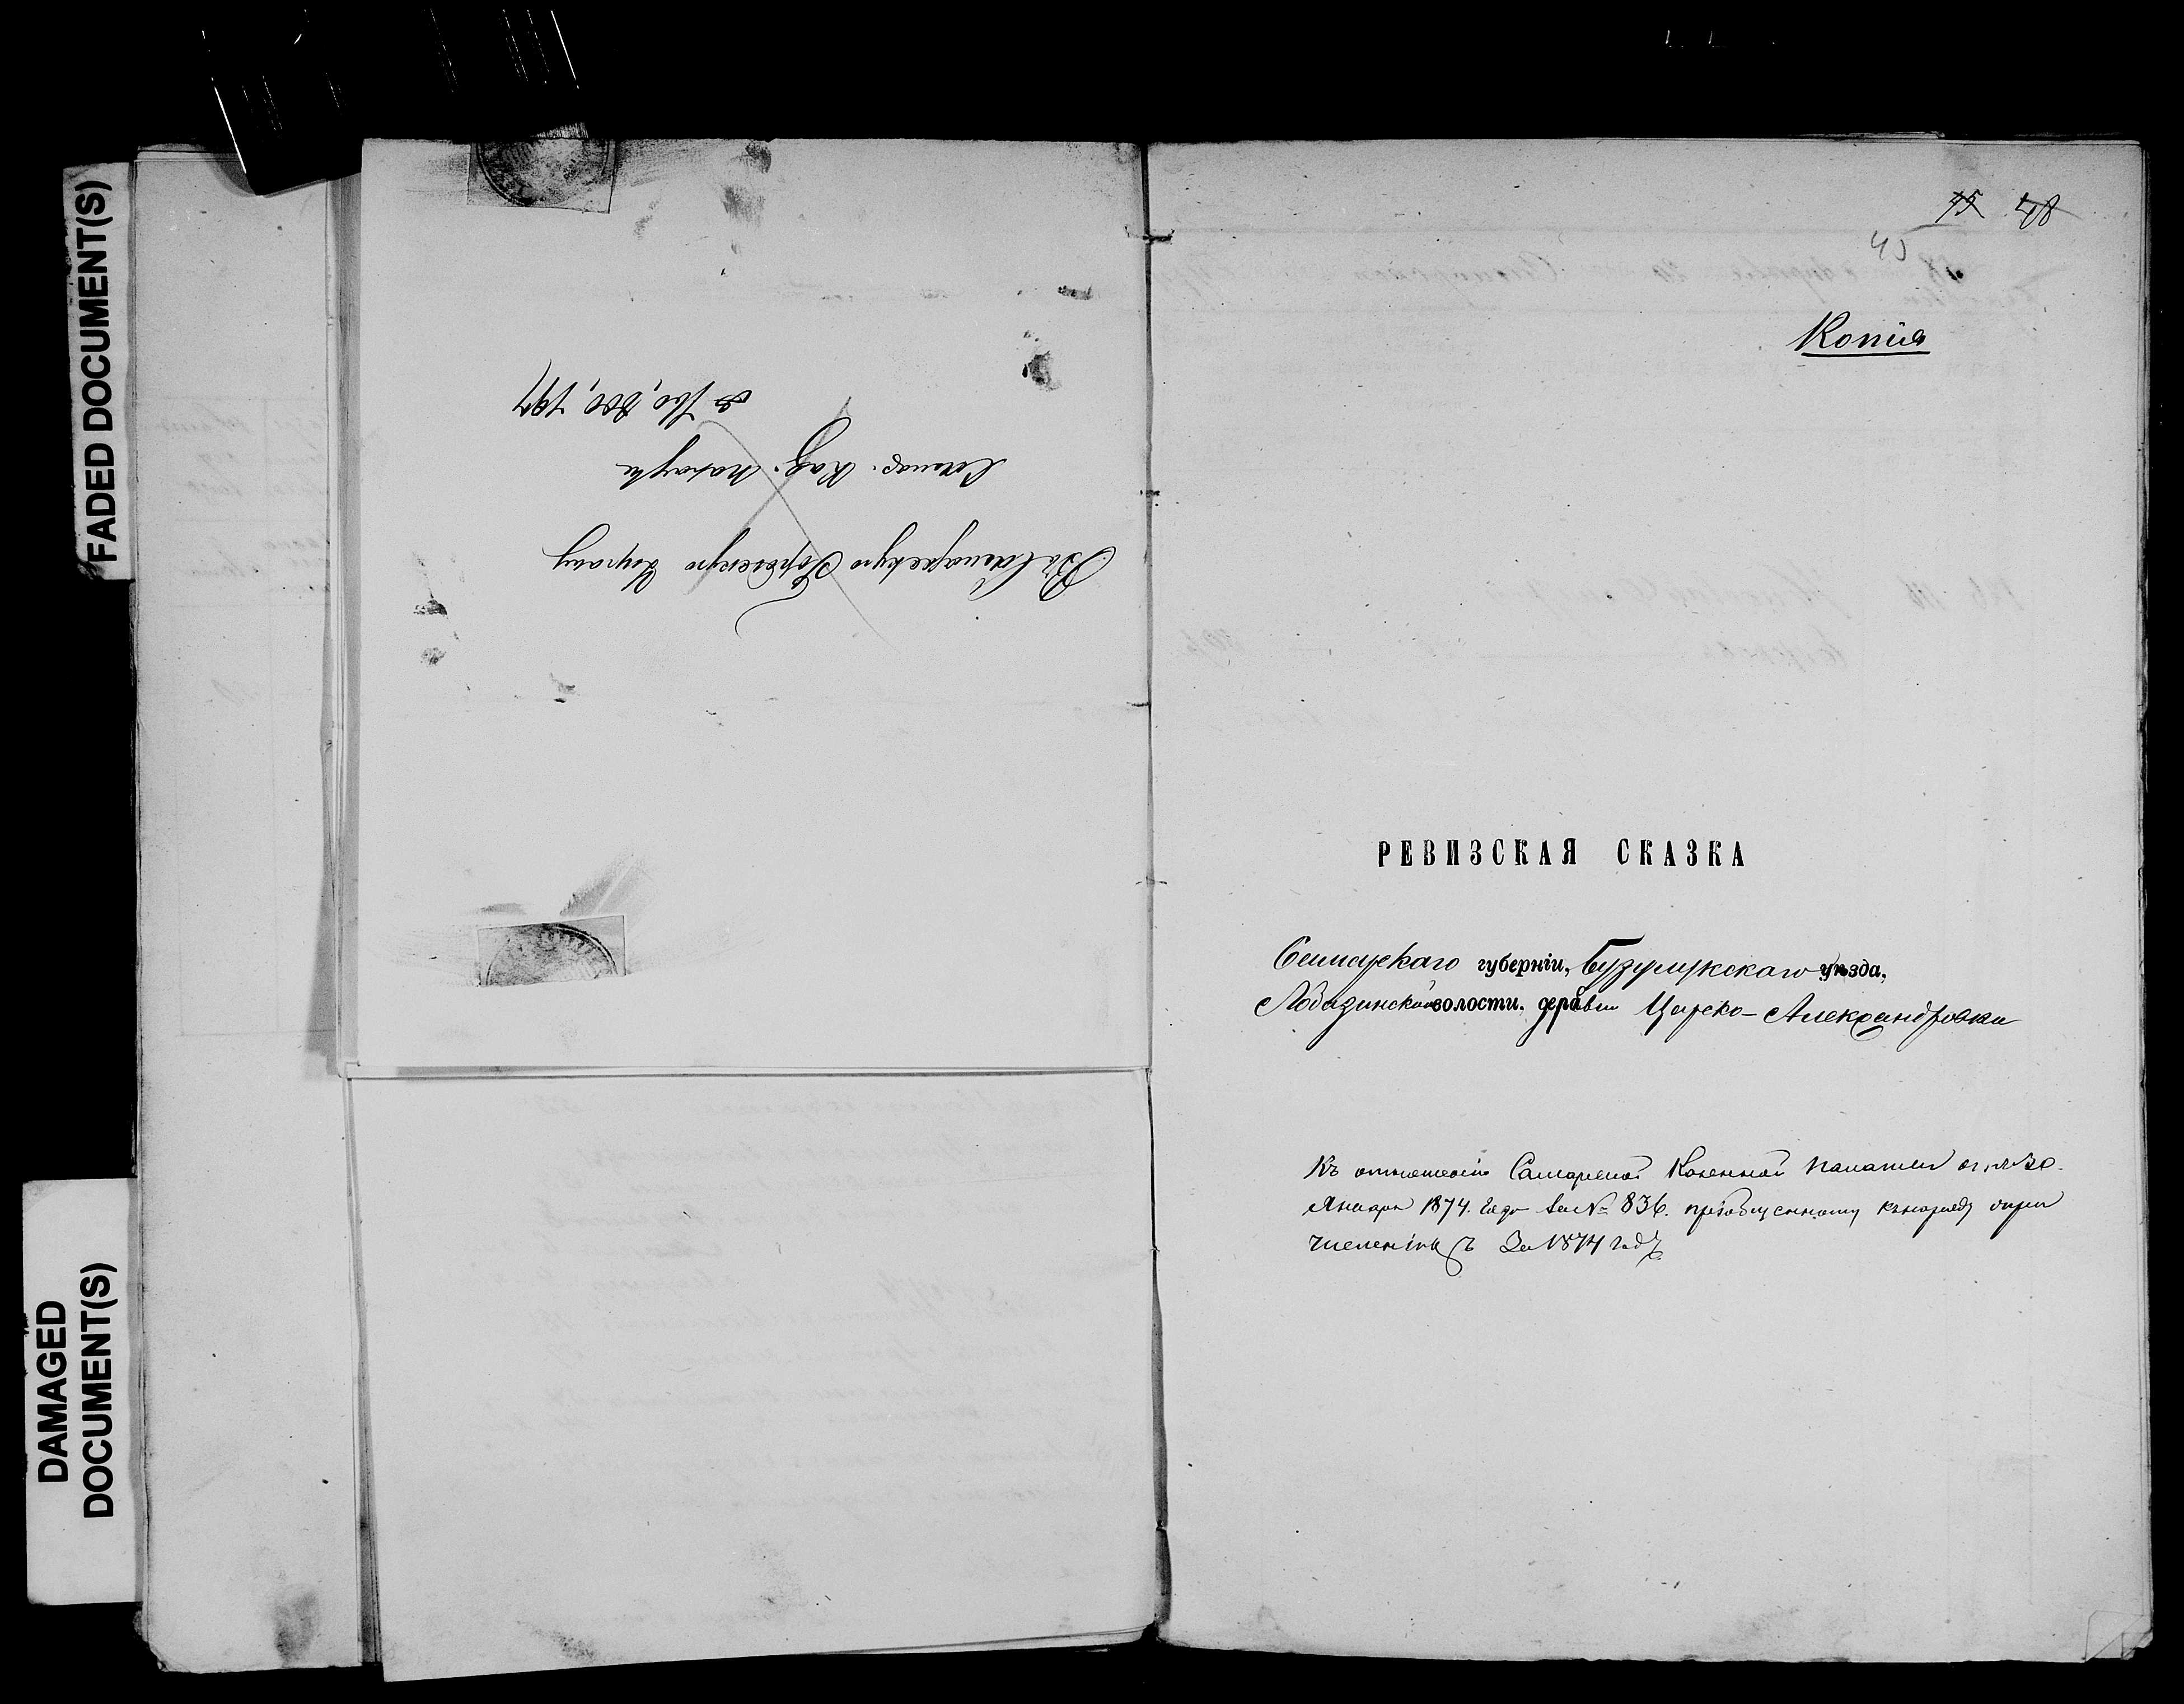 FADED DOCUMENT(S)
DAMAGED
DOCUMENT(S)
Въ Самарскую Городскую Управу
Самар. Каз. Палаты
75 48
45
Копія
РЕВИЗСКАЯ СКАЗКА
Самарскаго губерніи, Бузулукскаго уѣзда,
Лобазинской волости, деревни Царско-Александровки
Къ отношенію Самарской Казенной палаты отъ 30
Января 1874. года за № 836. пріобщенному къ наряду о при
численіяхъ За 1874 годъ